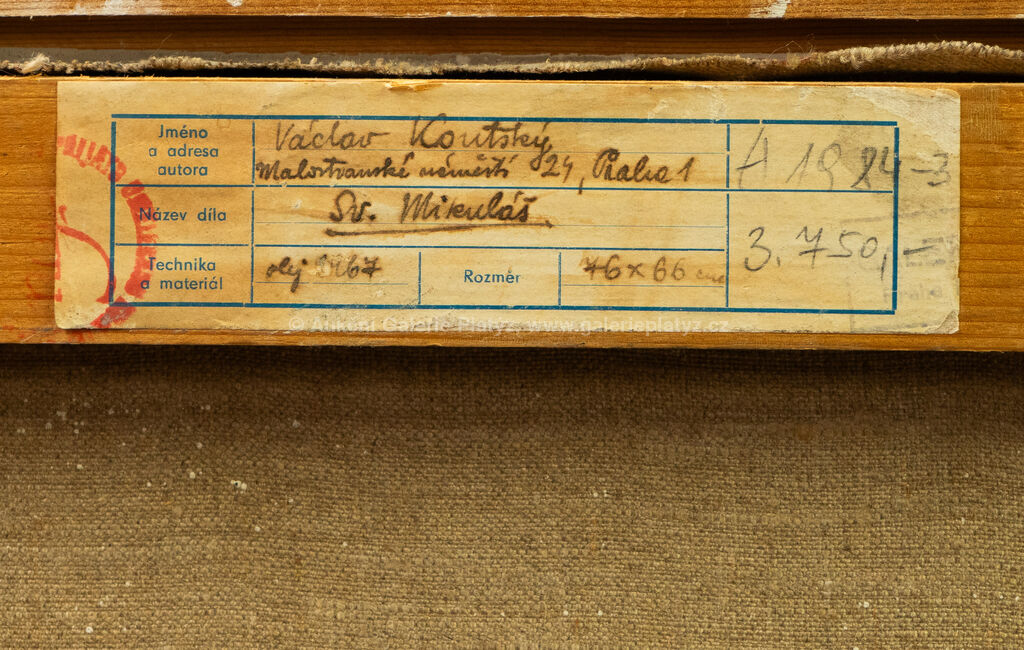 Jméno
a adresa
autora
Václav Koutský
Malostranské náměstí 24, Praha 1
A 1984-3
Název díla
Sv. Mikuláš
3.750,-
Technika
a materiál
olej 1967
Rozměr
76 x 66 cm
© Aukční Galerie Platýz www.galerieplatyz.cz